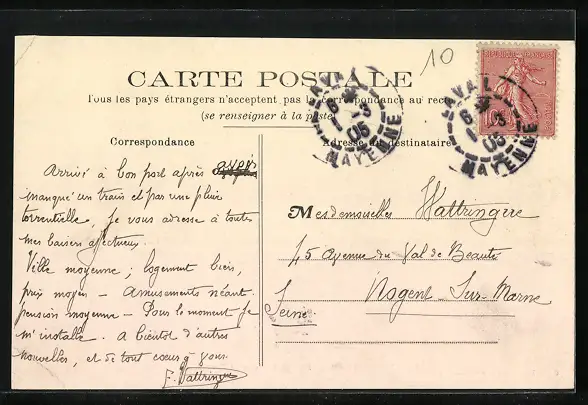 10
CARTE POSTALE
Tous les pays étrangers n'acceptent pas la correspondance au recto
(se renseigner à la poste)
Correspondance
Adresse du destinataire
LAVAL
MAYENNE
LAVAL
MAYENNE
Arrivé à bon port après
manqué un train et par une pluie
torrentielle, je vous adresse à toutes
mes baisers affectueux
Ville moyenne ; logement bien,
prix moyen – Amusements néant.
pension moyenne – Pour le moment je
m'installe. A bientôt d'autres
nouvelles, et de tout cœur à vous.
F. Wattringue
Mesdemoiselles Wattringue
45 Avenue du Val de Beauté
Nogent-Sur-Marne
Seine